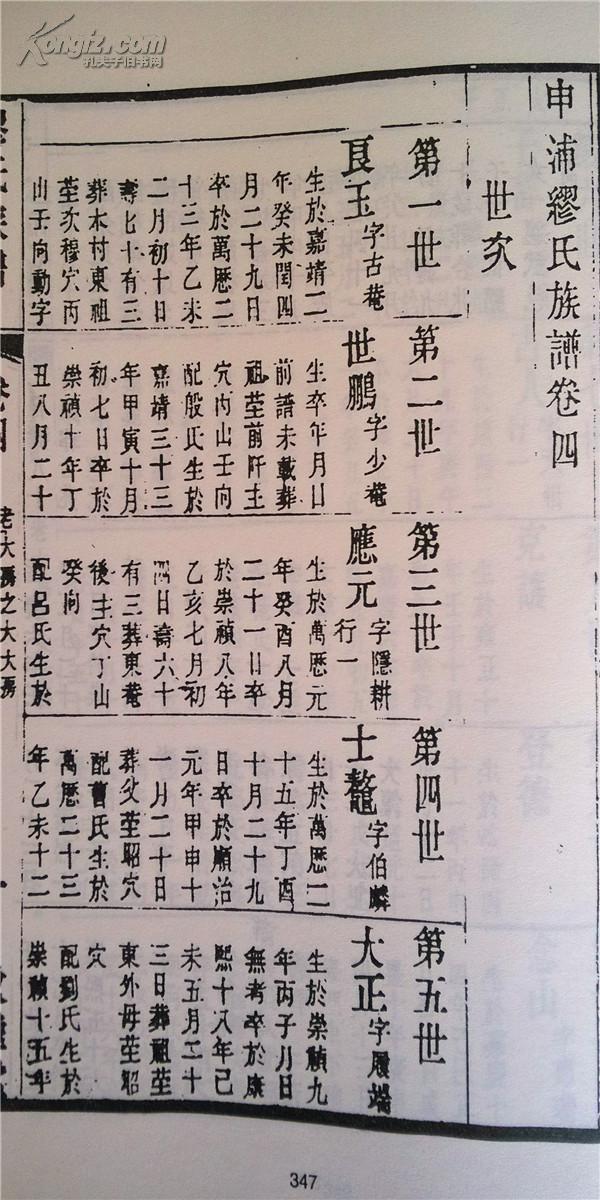 Kongfz.com
孔夫子旧书网
申浦繆氏族譜卷四
世次
第一世
良玉 字古菴
生於嘉靖二
年癸未閏四
月二十九日
卒於萬歷二
十三年乙未
二月初十日
壽七十有三
葬木村東祖
塋次穆穴丙
山壬向動字
第二世
世鵬 字少菴
生卒年月日
前譜未載葬
祖塋前阡主
穴丙山壬向
配殷氏生於
嘉靖三十三
年甲寅十月
初七日卒於
崇禎十年丁
丑八月二十
第三世
應元 字隱耕
行一
生於萬歷元
年癸酉八月
二十一日卒
於崇禎八年
乙亥七月初
四日壽六十
有三葬東菴
後主穴丁山
癸向
配呂氏生於
第四世
士鼇 字伯麟
生於萬歷
十五年丁酉
十月二十九
日卒於順治
元年甲申十
一月二十日
葬父塋昭穴
配曹氏生於
萬歷二十三
年乙未十二
第五世
大正 字履端
生於崇禎九
年丙子月日
無考卒於康
熙十八年己
未五月二十
三日葬祖塋
東外母塋昭
穴
配劉氏生於
崇禎十五年
卷四
老大房之大大房
347